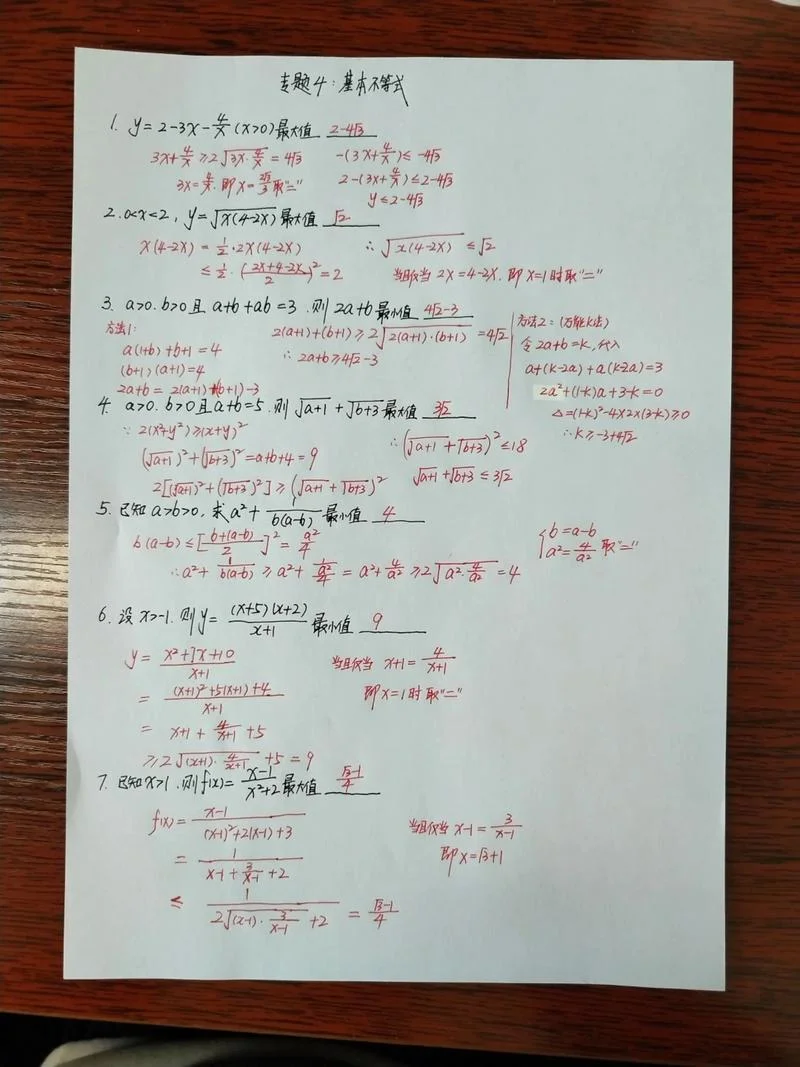 专题4:基本不等式
1. y=2-3x-4/x(x>0)最大值 2-4√3
3x+4/x≥2√(3x·4/x)=4√3 -(3x+4/x)≤-4√3
3x=4/x.即x=2√3/3取"=" 2-(3x+4/x)≤2-4√3
y≤2-4√3
2. 0<x<2, y=√(x(4-2x))最大值 √2
x(4-2x)=1/2·2x(4-2x) ∴√(x(4-2x))≤√2
≤1/2·((2x+4-2x)/2)²=2 当且仅当2x=4-2x.即x=1时取"="
3. a>0.b>0且a+b+ab=3.则2a+b最小值 4√2-3
方法1: 2(a+1)+(b+1)≥2√(2(a+1)·(b+1))=4√2
a(1+b)+b+1=4 ∴2a+b≥4√2-3
(b+1)(a+1)=4
2a+b=2(a+1)+(b+1)-3
方法2:(万能k法)
令2a+b=k,代入
a+(k-2a)+a(k-2a)=3
2a²+(1-k)a+3-k=0
△=(1-k)²-4×2×(3-k)≥0
∴k≥-3+4√2
4. a>0.b>0且a+b=5.则√(a+1)+√(b+3)最大值 3√2
∵2(x²+y²)≥(x+y)² ∴(√(a+1)+√(b+3))²≤18
(√(a+1))²+(√(b+3))²=a+b+4=9 √(a+1)+√(b+3)≤3√2
2[(√(a+1))²+(√(b+3))²]≥(√(a+1)+√(b+3))²
5. 已知a>b>0,求a²+1/(b(a-b))最小值 4
b(a-b)≤[(b+(a-b))/2]²=a²/4 {b=a-b
a²=4/a² 取"="
∴a²+1/(b(a-b))≥a²+1/(a²/4)=a²+4/a²≥2√(a²·4/a²)=4
6. 设x>-1.则y=(x+5)(x+2)/(x+1)最小值 9
y=(x²+7x+10)/(x+1) 当且仅当x+1=4/(x+1)
=((x+1)²+5(x+1)+4)/(x+1) 即x=1时取"="
=x+1+4/(x+1)+5
≥2√((x+1)·4/(x+1))+5=9
7. 已知x>1.则f(x)=(x-1)/(x²+2)最大值 (√3-1)/4
f(x)=(x-1)/((x-1)²+2(x-1)+3) 当且仅当x-1=3/(x-1)
=1/(x-1+3/(x-1)+2) 即x=√3+1
≤1/(2√((x-1)·3/(x-1))+2)=(√3-1)/4